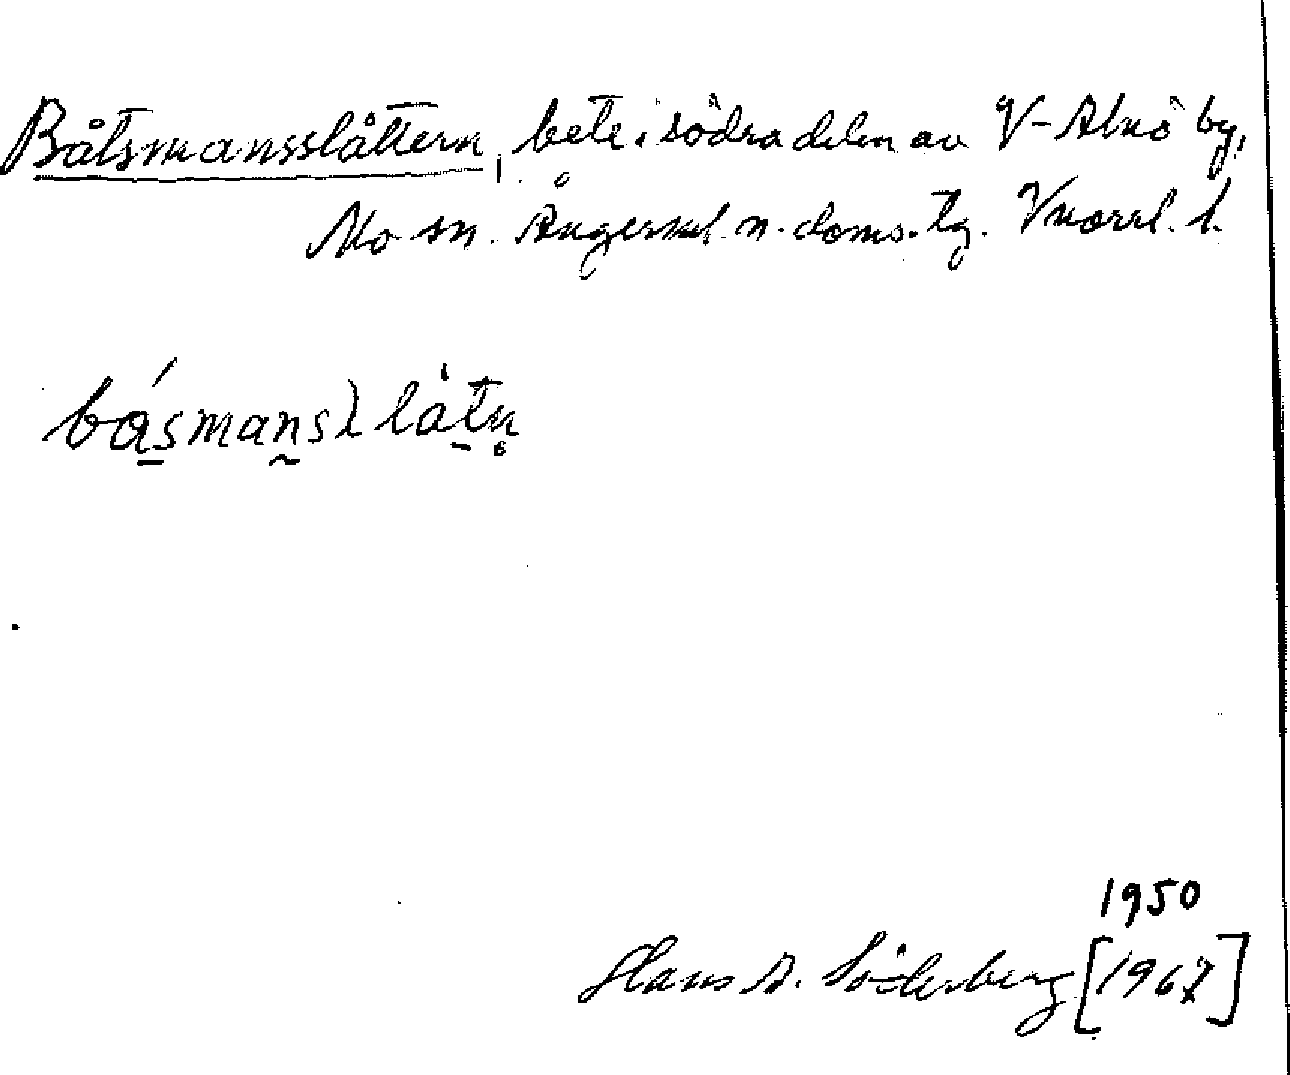 Båtsmansslåttern, bete i södra delen av V-Alnö by,
Mo sn. Ångerml. n. doms. tg. Vnorrl. l.
båsmansllåtn
1950
Hans A. Söderberg [1967]